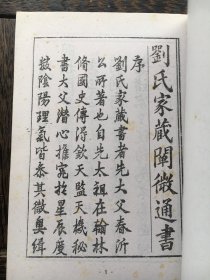 劉氏家藏闡微通書
序
劉氏家藏書者先大父春沂
公所著也自先太祖在翰林
脩國史傳得欽天監天機秘
書大父潛心推究於星辰度
數陰陽理氣皆泰其微奧緝